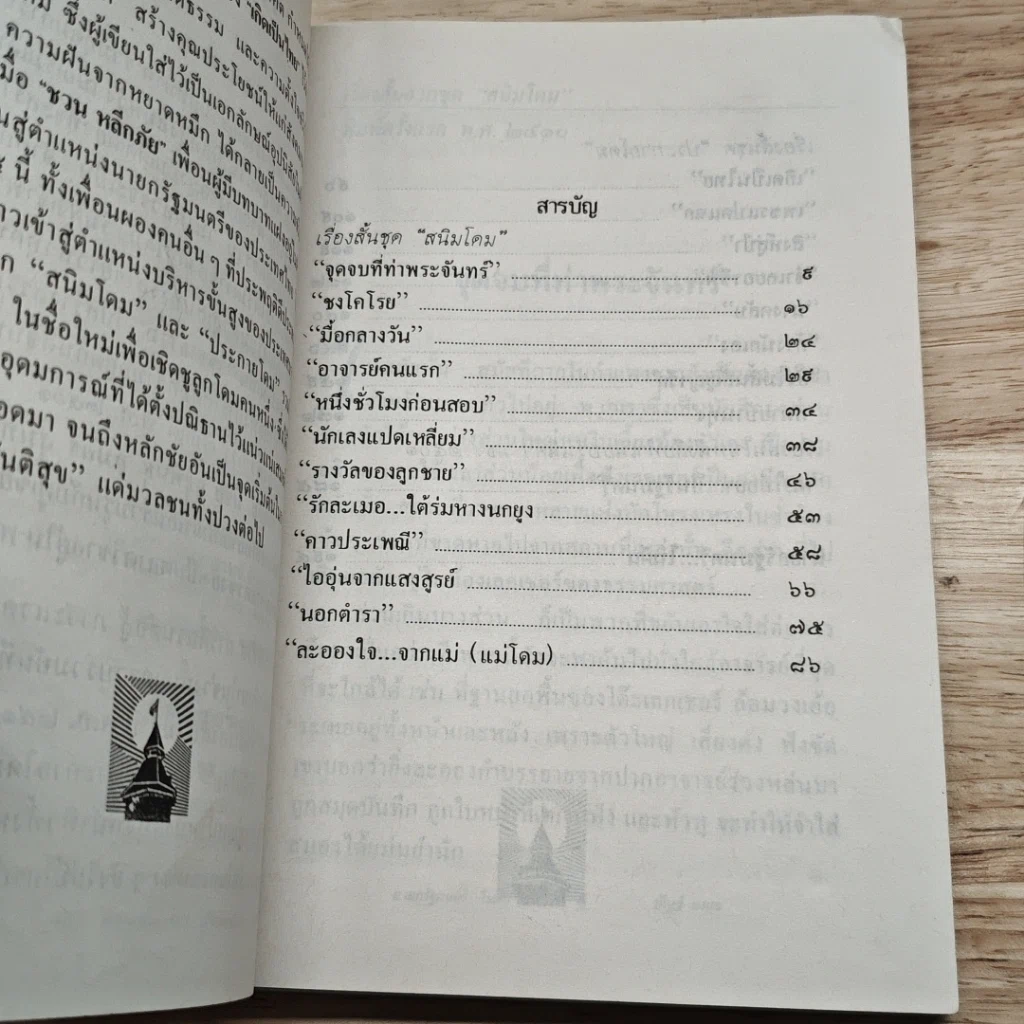 สร้างคุณประโยชน์ให้แก่สังคม
ซึ่งผู้เขียนใส่ไว้เป็นเอกลักษณ์อุปนิสัย
ความฝันจากหยาดหมึก ได้กลายเป็นความ
"ชวน หลีกภัย" เพื่อนผู้มีบทบาทแฝงอยู่ใน
สู่ตำแหน่งนายกรัฐมนตรีของประเทศไทย
นี้ ทั้งเพื่อนผองคนอื่น ๆ ที่ประพฤติดี
เข้าสู่ตำแหน่งบริหารชั้นสูงของประเทศ
"สนิมโดม" และ "ประกายโดม"
ในชื่อใหม่เพื่อเชิดชูลูกโดมคนหนึ่ง
อุดมการณ์ที่ได้ตั้งปณิธานไว้แน่วแน่
จนถึงหลักชัยอันเป็นจุดเริ่มต้น
แด่มวลชนทั้งปวงต่อไป
สารบัญ
เรื่องสั้นชุด "สนิมโดม"
"จุดจบที่ท่าพระจันทร์" ๙
"ชงโคโรย" ๑๖
"มื้อกลางวัน" ๒๔
"อาจารย์คนแรก" ๒๙
"หนึ่งชั่วโมงก่อนสอบ" ๓๔
"นักเลงแปดเหลี่ยม" ๓๘
"รางวัลของลูกชาย" ๔๖
"รักละเมอ...ใต้ร่มหางนกยูง ๕๓
"คาวประเพณี" ๕๘
"ไออุ่นจากแสงสูรย์ ๖๖
"นอกตำรา" ๗๕
"ละอองใจ...จากแม่ (แม่โดม) ๘๖